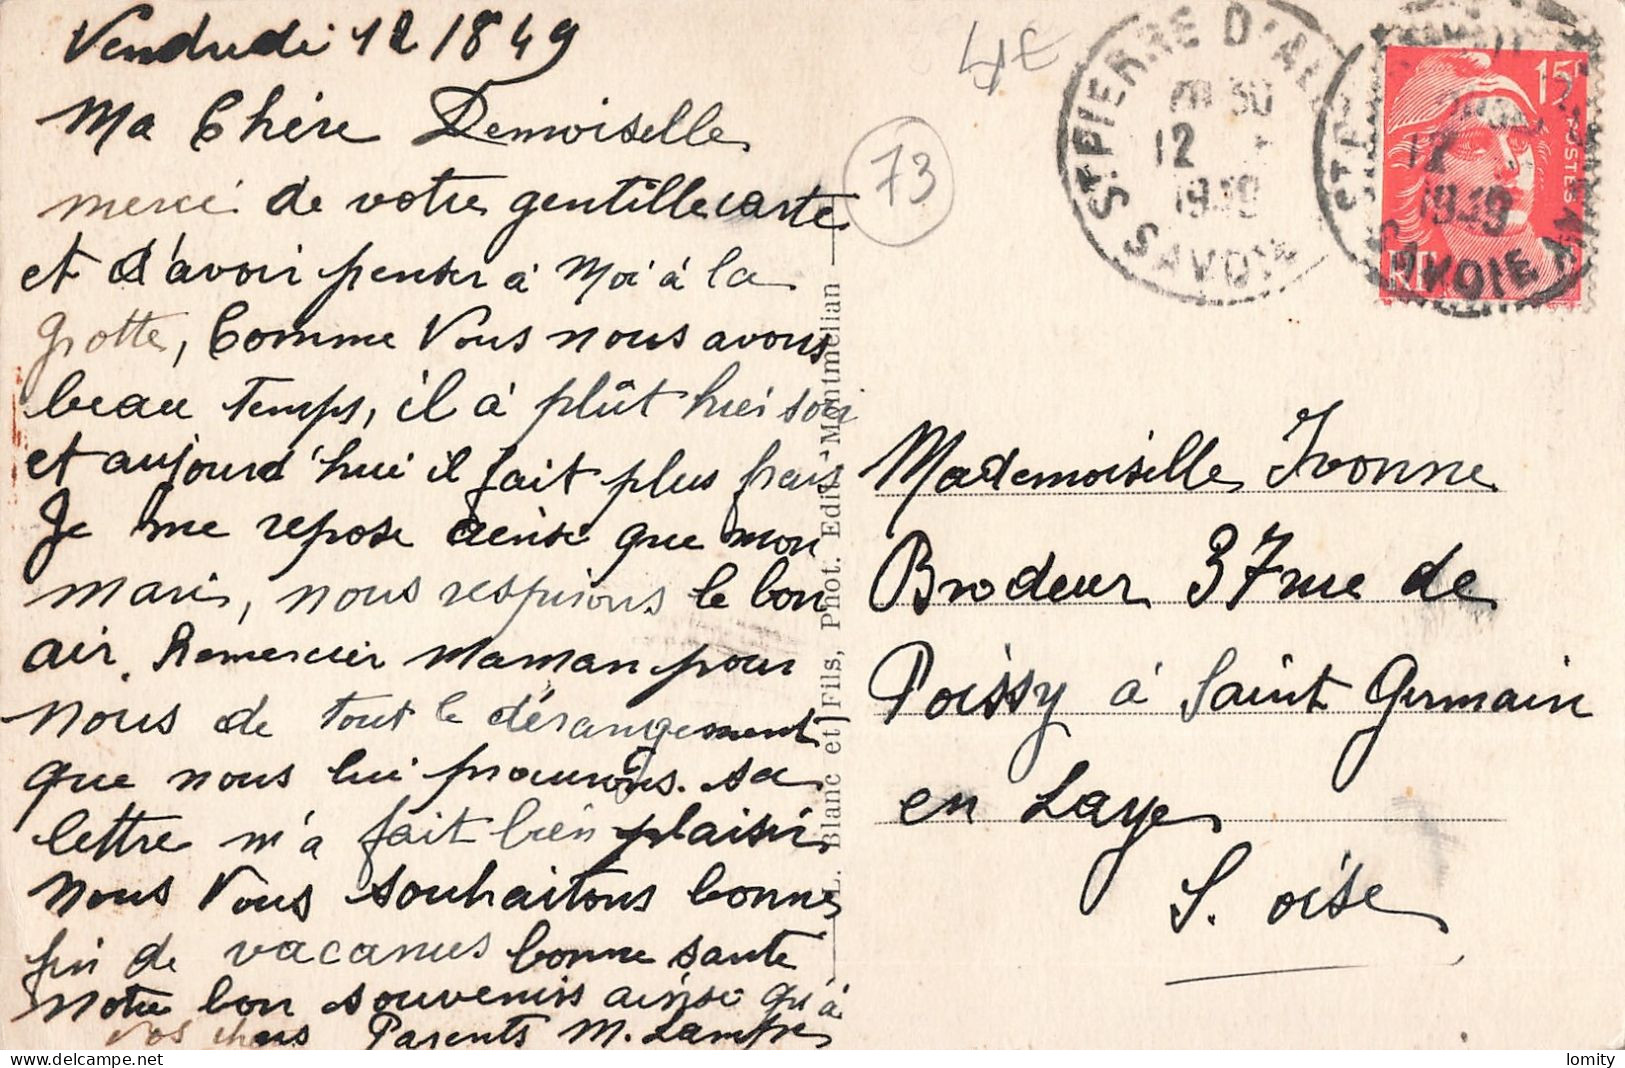 Vendredi 12/8 49
Ma Chère Demoiselle
merci de votre gentille carte
et d'avoir penser à Moi à la
grotte, Comme Vous nous avons
beau temps, il à plût hier soir
et aujourd'hui il fait plus frais
Je me repose ainsi que mon
mari, nous respirons le bon
air. Remercier Maman pour
Nous de tout le dérangement
que nous lui procurons. sa
lettre m'a fait bien plaisir
Nous Vous souhaitons bonne
fin de vacances bonne santé
Notre bon souvenirs ainsi qu'à
vos chers Parents M.
4€
73
L. Blanc et Fils, Phot. Edit. Montmélian
ST PIERRE D'AL
12
1949
SAVOIE
15F
POSTES
RF
12
1949
SAVOIE
Mademoiselle Yvonne
Brodeur 37 rue de
Poissy à Saint Germain
en Laye
S. oise
delcampe.net
lomity